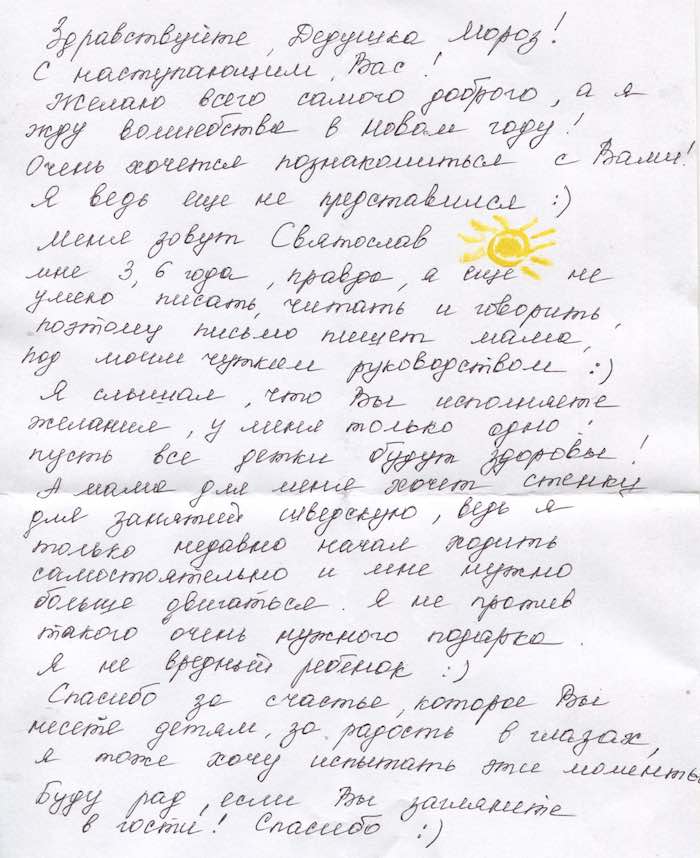 Здравствуйте, Дедушка Мороз!
С наступающим, Вас!
Желаю всего самого доброго, а я
жду волшебства в Новом году!
Очень хочется познакомиться с Вами!
Я ведь еще не представился :)
Меня зовут Святослав
мне 3,6 года, правда, я еще не
умею писать, читать и говорить,
поэтому письмо пишет мама,
под моим чутким руководством :)
Я слышал, что Вы исполняете
желания, у меня только одно:
пусть все детки будут здоровы!
А мама для меня хочет стенку
для занятий шведскую, ведь я
только недавно начал ходить
самостоятельно и мне нужно
больше двигаться. Я не против
такого очень нужного подарка.
Я не вредный ребенок :)
Спасибо за счастье, которое Вы
несете детям, за радость в глазах,
я тоже хочу испытать эти моменты
Буду рад, если Вы заглянете
в гости! Спасибо :)